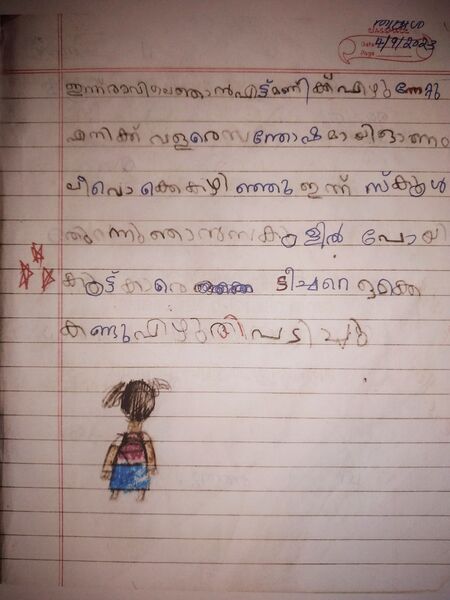 തിങ്കൾ
Date 4/9/2023
Page
ഇന്ന് രാവിലെ ഞാൻ എട്ട് മണിക്ക് എഴുന്നേറ്റു
എനിക്ക് വളരെ സന്തോഷമായി ഓണം
ലീവൊക്കെ കഴിഞ്ഞു ഇന്ന് സ്കൂൾ
തുറന്നു ഞാൻ സ്കൂളിൽ പോയി
കൂട്ടുകാരെ ടീച്ചറെ ഒക്കെ
കണ്ടു എഴുതി പഠിച്ചു